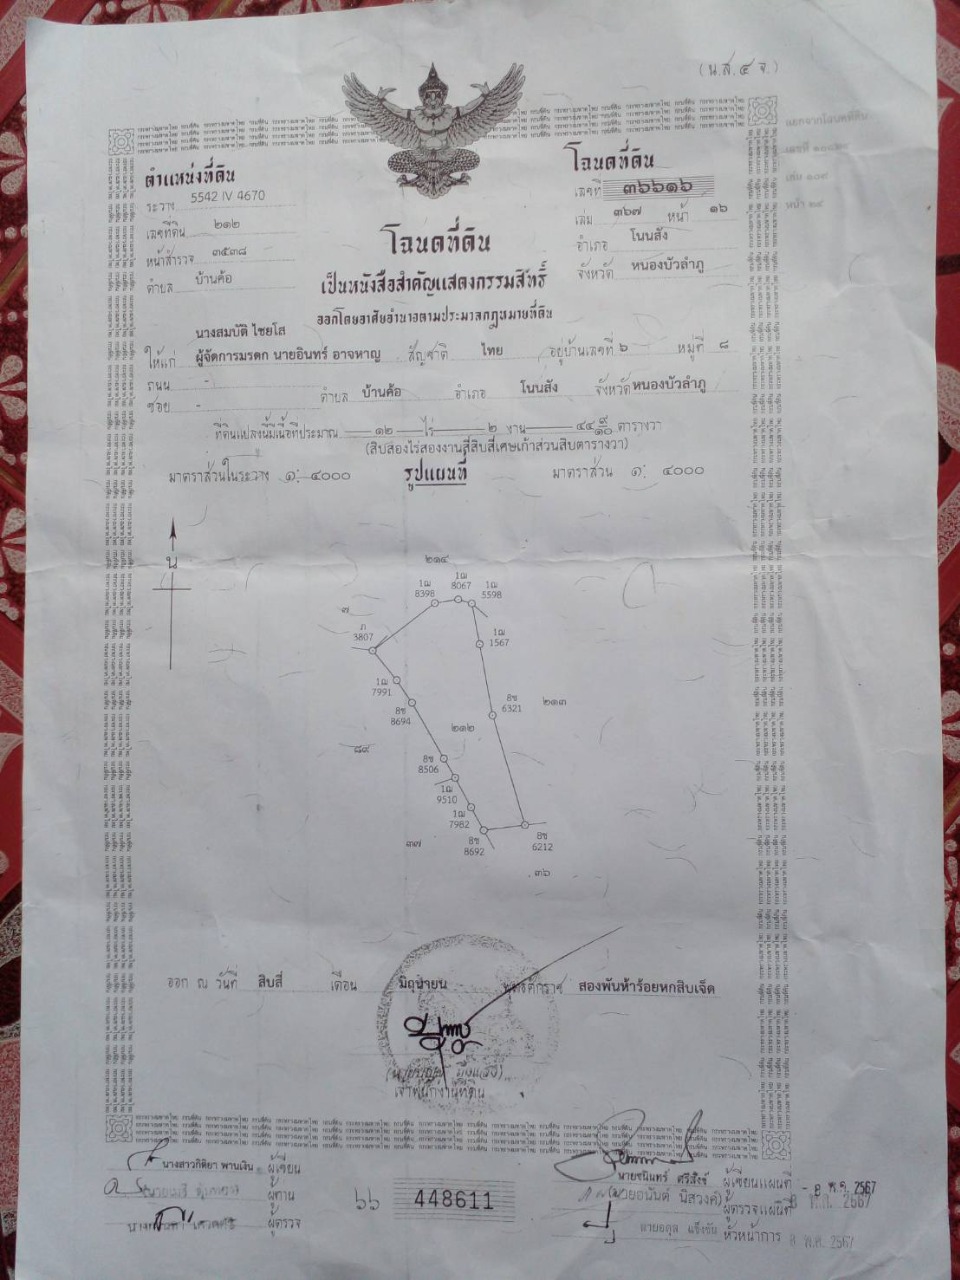 (น.ส.๔ จ.)
ตำแหน่งที่ดิน
ระวาง 5542 IV 4670
เลขที่ดิน ๒๑๒
หน้าสำรวจ ๓๕๓๘
ตำบล บ้านค้อ
โฉนดที่ดิน
เลขที่ ๓๖๖๑๖
เล่ม ๓๖๗ หน้า ๑๖
อำเภอ โนนสัง
จังหวัด หนองบัวลำภู
แยกจากโฉนดที่ดิน
เลขที่
เล่ม ๑๐๓
หน้า ๒๔
โฉนดที่ดิน
เป็นหนังสือสำคัญแสดงกรรมสิทธิ์
ออกโดยอาศัยอำนาจตามประมวลกฎหมายที่ดิน
นางสมบัติ ไชยโส
ให้แก่ ผู้จัดการมรดก นายอินทร์ อาจหาญ สัญชาติ ไทย อยู่บ้านเลขที่ ๖ หมู่ที่ ๘
ถนน -
ซอย - ตำบล บ้านค้อ อำเภอ โนนสัง จังหวัด หนองบัวลำภู
ที่ดินแปลงนี้มีเนื้อที่ประมาณ ๑๒ ไร่ ๒ งาน ๔๔ ๙/๑๐ ตารางวา
(สิบสองไร่สองงานสี่สิบสี่เศษเก้าส่วนสิบตารางวา)
มาตราส่วนในระวาง ๑: ๔๐๐๐ รูปแผนที่ มาตราส่วน ๑: ๔๐๐๐
น
๒๑๔
1ฒ
8398
1ฒ
8067
1ฒ
5598
๗
ภ
3807
1ฒ
1567
1ฒ
7991
8ช
8694
8ช
6321
๒๑๓
๒๑๒
๘๙
8ช
8506
1ฒ
9510
1ฒ
7982
๓๗
8ช
8692
8ช
6212
๓๖
ออก ณ วันที่ สิบสี่ เดือน มิถุนายน พุทธศักราช สองพันห้าร้อยหกสิบเจ็ด
เจ้าพนักงานที่ดิน
นางสาวกิติยา พานเงิน ผู้เขียน
ผู้ทาน
ผู้ตรวจ
๖๖ 448611
นายชนินทร์ ศรีสิงห์ ผู้เขียนแผนที่ - 8 พ.ค. 2567
(นายอนันต์ นิสวงค์) ผู้ตรวจแผนที่ 8 พ.ค. 2567
นายอดุล แข็งขัน หัวหน้าการ 8 พ.ค. 2567